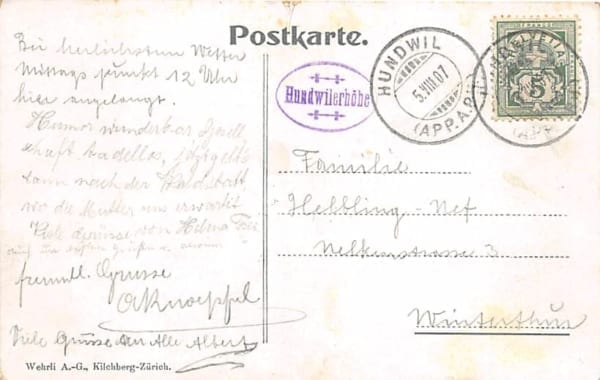 Postkarte.
Bei herrlichstem Wetter
Mittags punkt 12 Uhr
hier angelangt.
Humor wunderbar, Gesell
schaft tadellos, jetzt geht's
dann nach der Waldstatt,
wo die Mutter uns erwartet
Viele Grüsse von Helena
freundl. Grüsse
A Knoepfel
Viele Grüsse an Alle Albert
Wehrli A.-G., Kilchberg-Zürich.
Hundwilerhöhe
HUNDWIL
5.VIII.07
(APP.A.RH.)
FRANCO
HELVETIA
5
Familie
Helbling-Nef
Nelkenstrasse 3
Winterthur